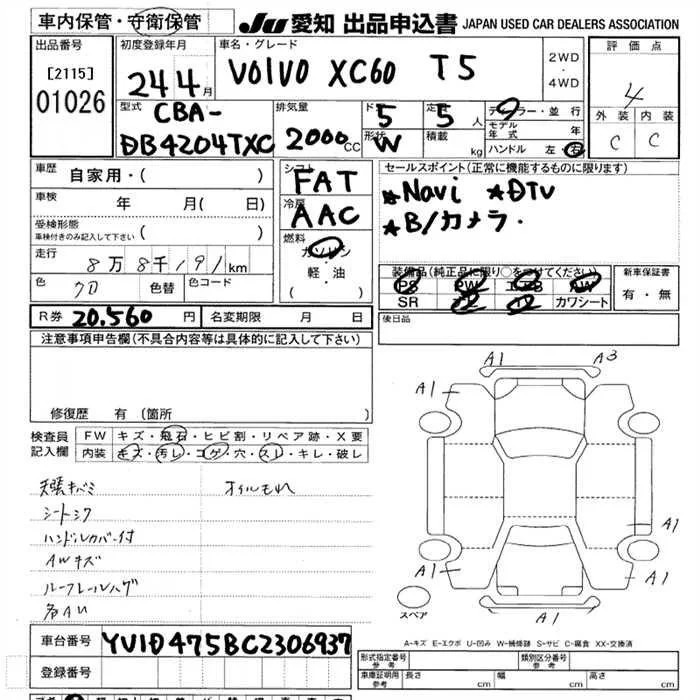 車内保管・守衛保管
JU 愛知 出品申込書 JAPAN USED CAR DEALERS ASSOCIATION
出品番号
[2115]
01026
初度登録年月
24 4月
車名・グレード
VOLVO XC60 T5
2WD
・
4WD
評価点
4
外装 内装
C C
型式
CBA-
DB4204TXC
排気量
2000cc
ド
5
形状
W
定員
5人
積載
kg
ディーラー・並行
モデル
年式
年
ハンドル 左・右
車歴
自家用・( )
車検
年 月(日)
受検形態
車検付きのみ記入して下さい ( )
走行
8万8千191km
色
色替
色コード
シフト
FAT
冷房
AAC
燃料
ガソリン
軽・油
( )
セールスポイント(正常に機能するものに限ります)
★Navi ★DTV
★B/カメラ・
装備品(純正品に限り○をつけてください)
PS PW エアB AW
SR カワシート
新車保証書
有・無
後日品
R券 20,560円
名変期限 月 日
注意事項申告欄(不具合内容等は具体的に記入して下さい)
修復歴 有(箇所 )
検査員
記入欄
FW キズ・飛石・ヒビ割・リペア跡・X要
内装 キズ・汚レ・コゲ・穴・スレ・キレ・破レ
天張キバミ
オイルもれ
シートシワ
ハンドルカバー付
AWキズ
ルーフレールハゲ
各AU
A1 A3
A1 A1
A1
A1 A1
スペア
A-キズ E-エクボ U-凹み W-補修跡 S-サビ C-腐食 XX-交換済
車台番号
YV1D475BC2306937
登録番号
形式指定番号
参考
類別区分番号
参考
車庫証明用
参考
長さ cm
幅 cm
高さ cm